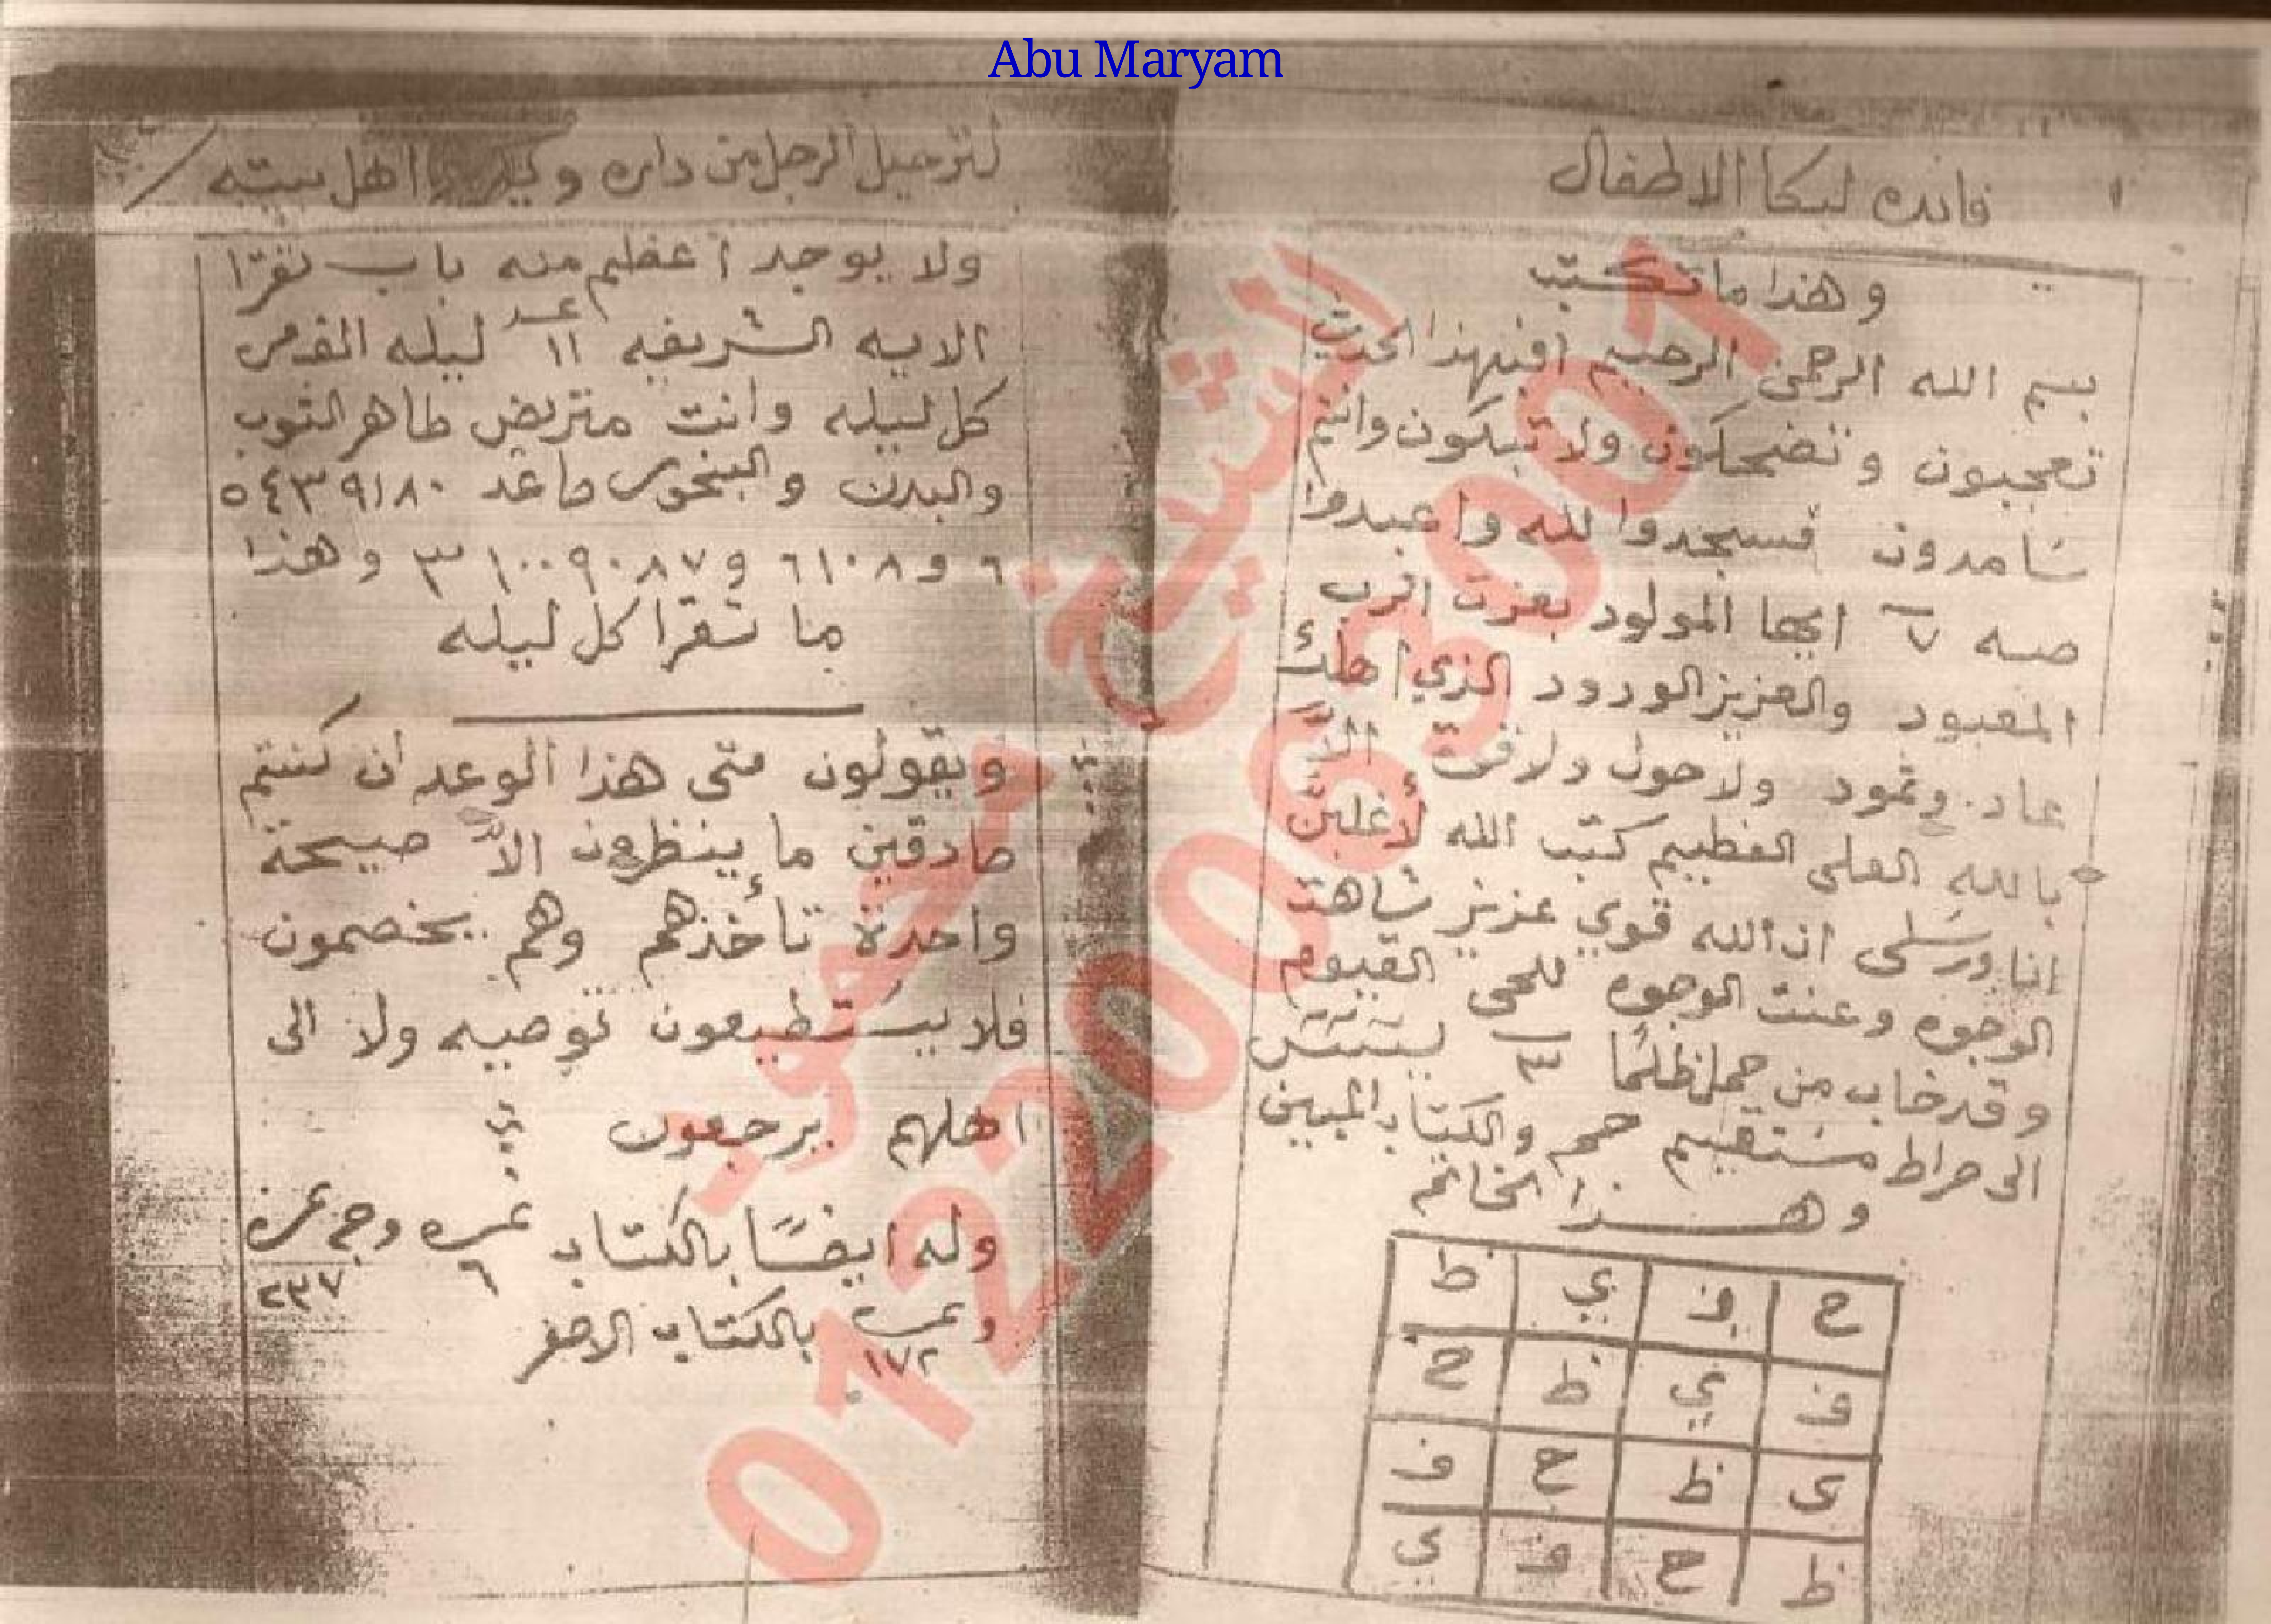 Abu Maryam
فائده لبكا الاطفال
وهذا ما تكتب
بسم الله الرحمن الرحيم افبهذا الحديث
تعجبون وتضحكون ولا تبكون وانتم
سامدون فسجدوا لله واعبدوا
صه ٧ ايها المولود بعزت الرب
المعبود والعزيز الودود الذي اهلك
عاد وثمود ولا حول ولا قوة الاّ
بالله العلى العظيم كتب الله لأغلبن
انا ورسلى ان الله قوي عزيز شاهت
الوجوه وعنت الوجوه للحى القيوم
وقد خاب من حمل ظلمًا ٣
الى صراط مستقيم حم والكتاب المبين
وهذا الخاتم
ح ف ي ظ
ف ي ظ ح
ى ظ ح ف
ظ ح ف ي
لترحيل الرجل من داره اهل بيته
ولا يوجد أعظم منه باب تقرا
الايه الشريفه عدد ١١ ليله القدمر
كل ليله وانت متريض طاهر التوب
والبدن والبخور ما عد ٥٤٣٩١٨٠
٦ و ٦١٠٨ و ٩٠٨٧ ١٠٠ ٣ وهذا
ما تقرا كل ليله
ويقولون متى هذا الوعد ان كنتم
صادقين ما ينظرون الاّ صيحة
واحدة تأخذهم وهم يخصمون
فلا يستطيعون توصيه ولا الى
اهلهم يرجعون
وله ايضًا بالكتاب نمره ٦ وجه نمره ٢٣٧
ونمره ١٧٢ بالكتاب الاصفر
الشيخ محمود
01220063001